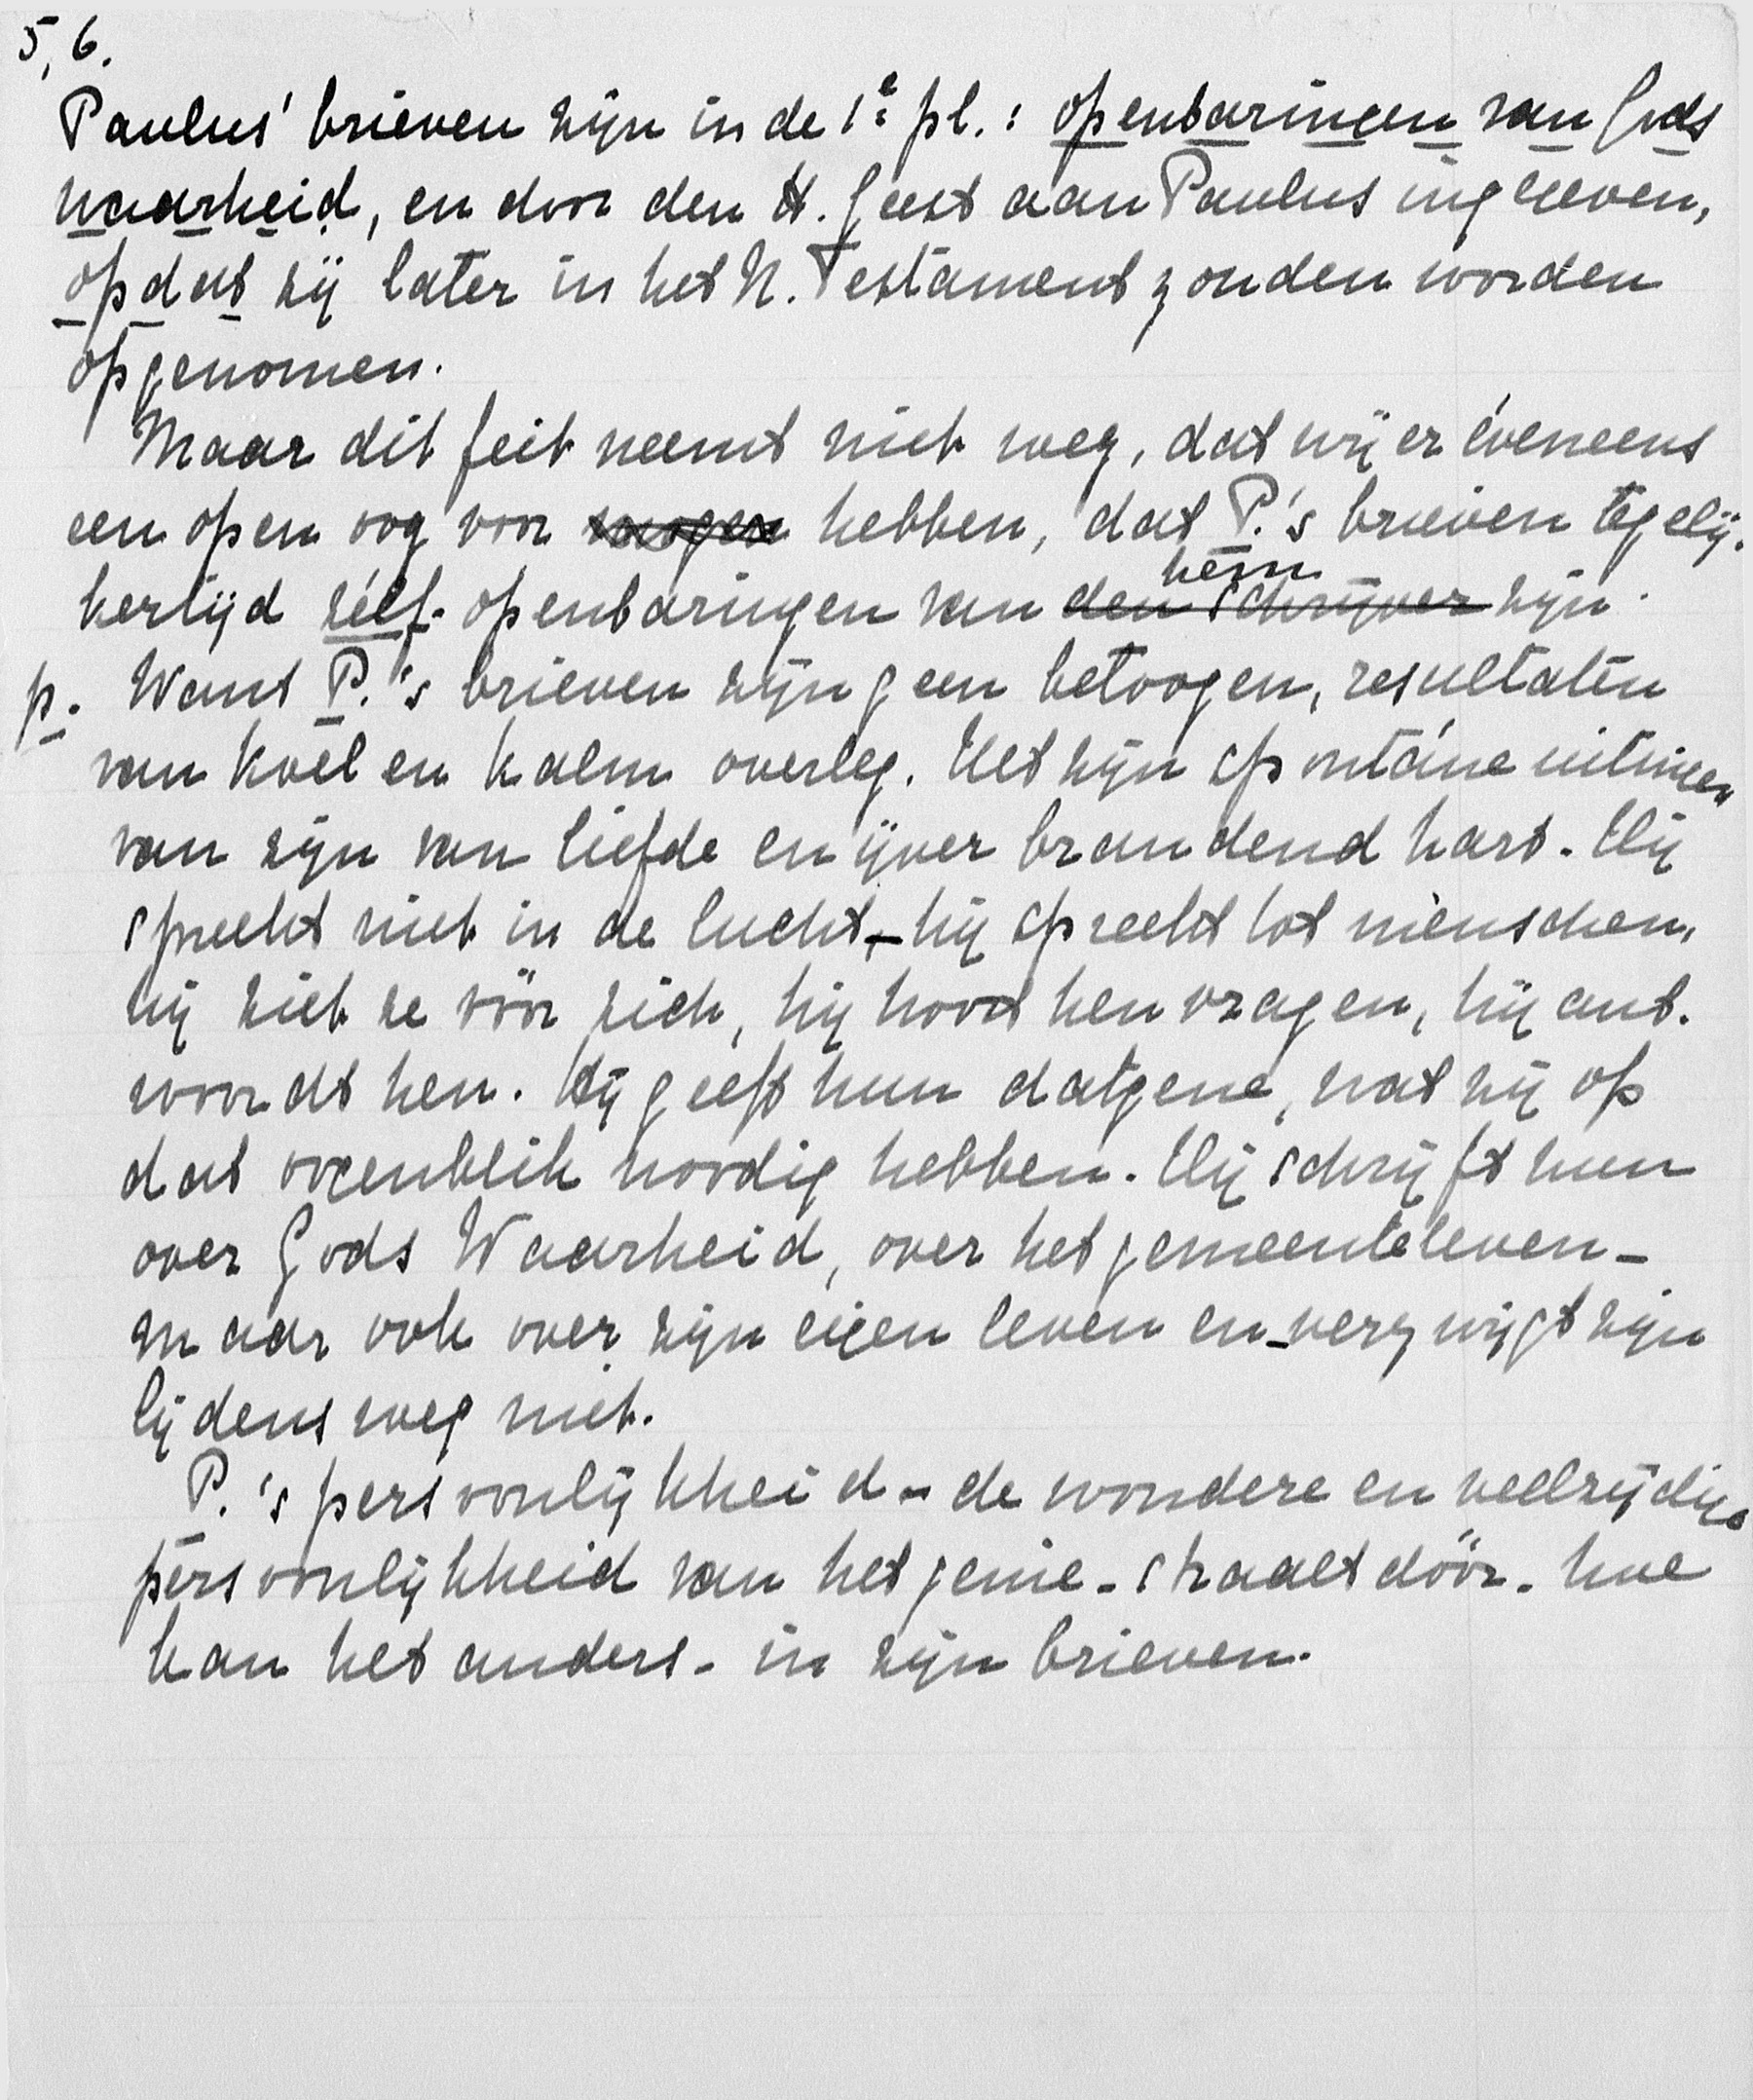 5, 6.
Paulus' brieven zijn in de 1e pl.: openbaringen van Gods
waarheid, en door den H. Geest aan Paulus ingegeven,
opdat zij later in het N. Testament zouden worden
opgenomen.
Maar dit feit neemt niet weg, dat wij er éveneens
een open oog voor mogen hebben, dat P.'s brieven tegelij-
kertijd zélf-openbaringen van den schrijver hem zijn.
p. Want P.'s brieven zijn geen betoogen, resultaten
van koel en kalm overleg. Het zijn spontáne uitingen
van zijn van liefde en ijver brandend hart. Hij
spreekt niet in de lucht, - hij spreekt tot menschen,
hij ziet ze vóór zich, hij hoort hen vragen, hij ant-
woordt hen. Hij geeft hun datgene, wat zij op
dat oogenblik noodig hebben. Hij schrijft hun
over Gods Waarheid, over het gemeenteleven -
maar ook over zijn eigen leven en - verzwijgt zijn
lijdensweg niet.
P.'s persoonlijkheid - de wondere en veelzijdige
persoonlijkheid van het genie - straalt dóór - hoe
kan het anders - in zijn brieven.